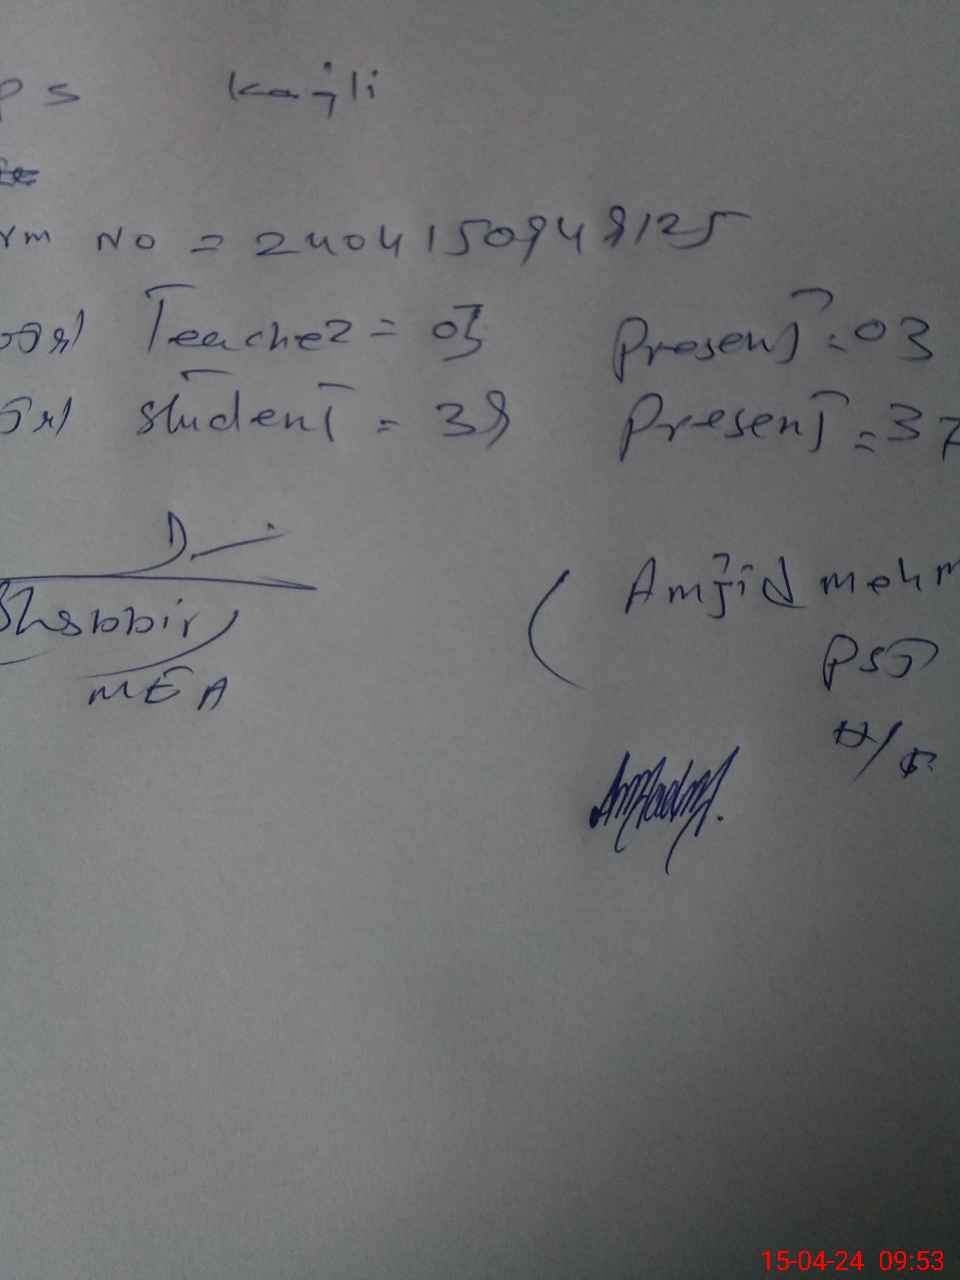 ps Kajli
rm No = 2404150948125
Teacher = 03 Present = 03
Student = 38 Present = 37
Shabbir
MEA
(Amjid mehm
PST
H/
15-04-24 09:53